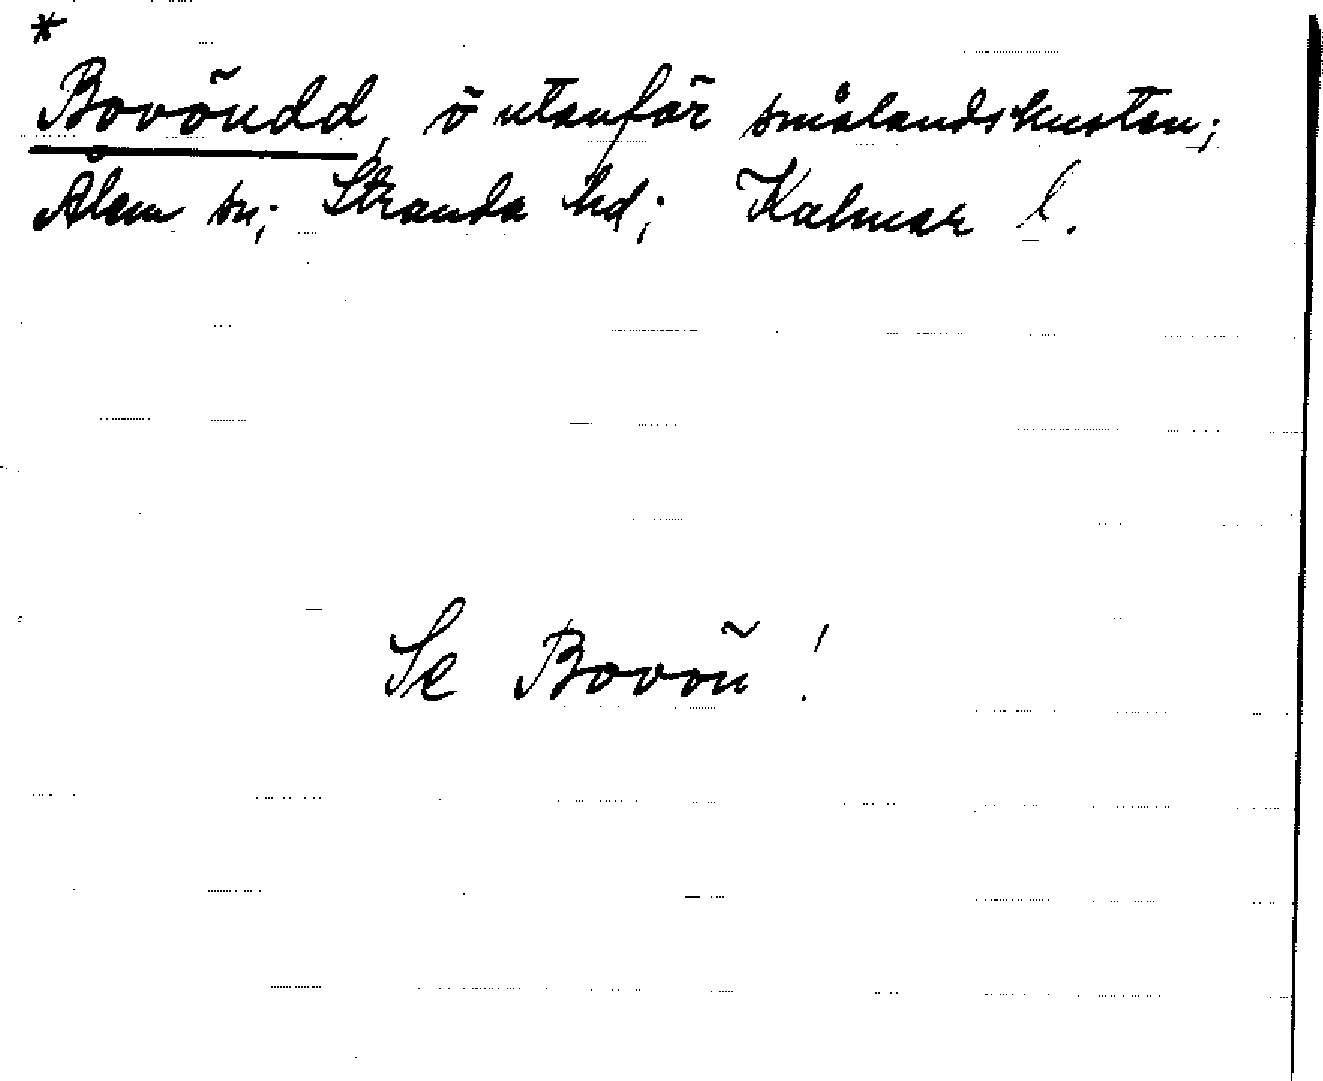 *
Bovöudd, ö utanför smålandskusten;
Ålem sn; Stranda hd; Kalmar l.
Se Bovöu!